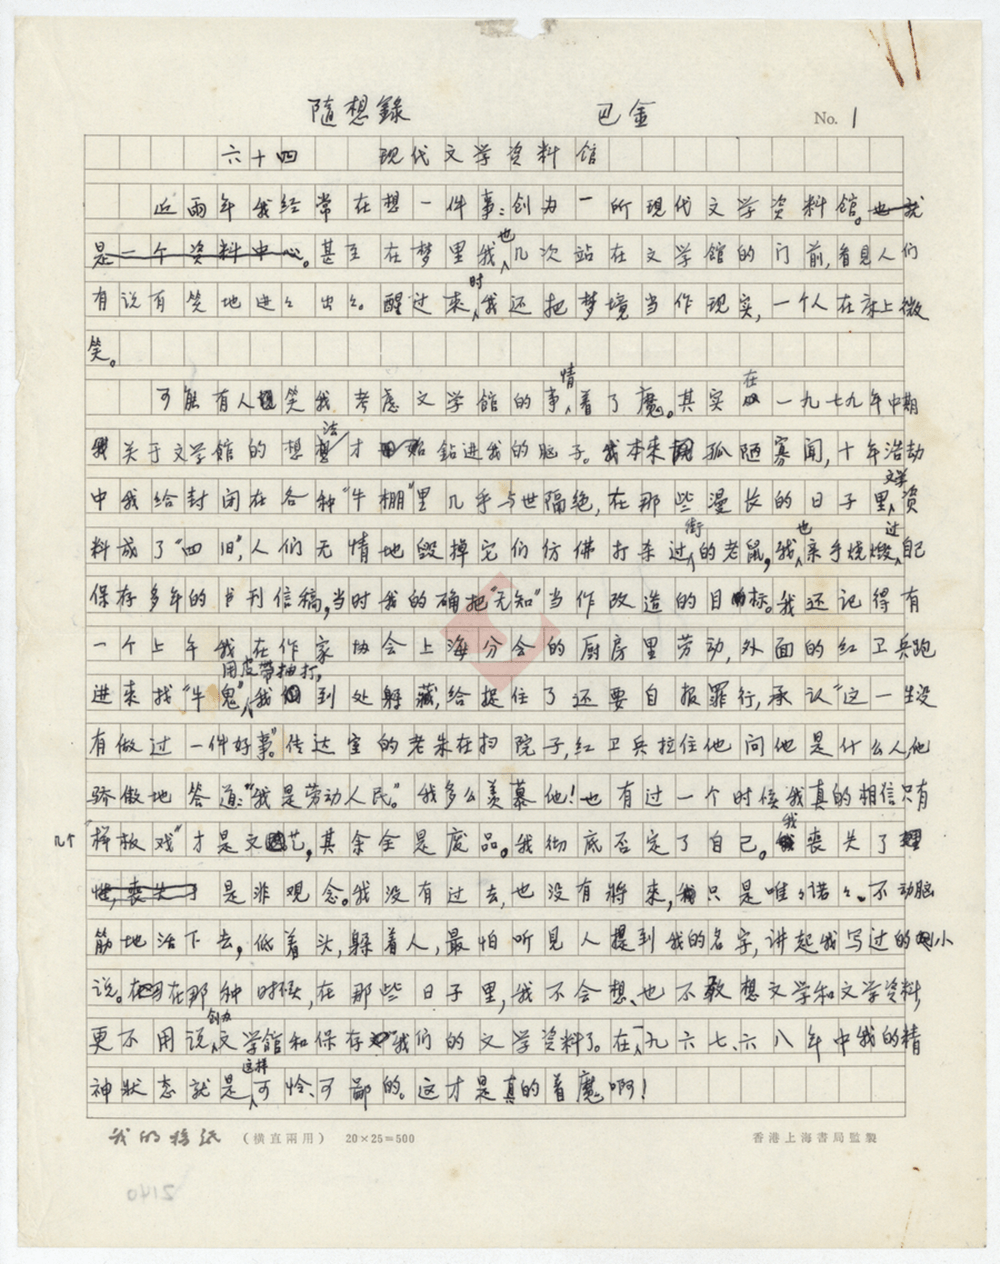 隨想錄　巴金　No. 1
六十四　現代文学資料馆
近兩年我经常在想一件事:创办一所现代文学资料馆。也就
是一个资料中心。甚至在梦里我也几次站在文学馆的门前,看见人们
有说有笑地进进出出。醒过来时,我还把梦境当作现实,一个人在床上微
笑。
可能有人笑我考虑文学馆的事情着了魔。其实在一九七九年中期
关于文学馆的想法才钻进我的脑子。我本来孤陋寡闻,十年浩劫
中我给封闭在各种“牛棚”里几乎与世隔绝,在那些漫长的日子里,文学资
料成了“四旧”,人们无情地毁掉它们仿佛打杀过街的老鼠,我也亲手烧毁过自己
保存多年的书刊信稿,当时我的确把“无知”当作改造的目标。我还记得有
一个上午我在作家协会上海分会的厨房里劳动,外面的红卫兵跑
进来找“牛鬼”用皮带抽打,我到处躲藏,给捉住了还要自报罪行,承认“这一生没
有做过一件好事”。传达室的老朱在扫院子,红卫兵拉住他问他是什么人,他
骄傲地答道:“我是劳动人民”。我多么羡慕他!也有过一个时候我真的相信只有
几个“样板戏”才是文艺,其余全是废品。我彻底否定了自己。我丧失了理
性,丧失了是非观念。我没有过去,也没有将来,只是唯唯诺诺、不动脑
筋地活下去,低着头,躲着人,最怕听见人提到我的名字,讲起我写过的小
说。在那种时候,在那些日子里,我不会想、也不敢想文学和文学资料,
更不用说创办文学馆和保存我们的文学资料了。在一九六七、六八年中我的精
神状态就是这样可怜、可鄙的。这才是真的着魔啊!
我的稿纸 (横直兩用) 20×25=500　香港上海書局監製
2140